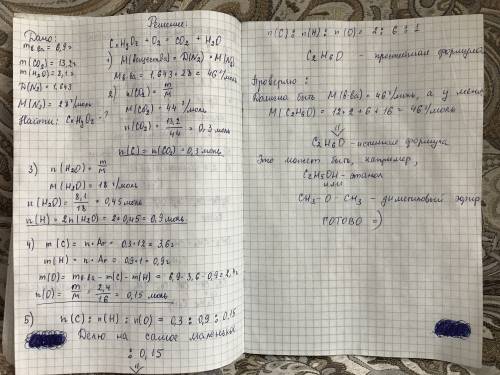 Дано:
m в-ва = 6,9г
m(CO2) = 13,2г
m(H2O) = 8,1г
D(N2) = 1,643
M(N2) = 28 г/моль
Найти: CxHyOz - ?
Решение:
CxHyOz + O2 = CO2 + H2O
1) M(вещества) = D(N2) * M(N2)
M в-ва = 1,643 * 28 = 46 г/моль
2) n(CO2) = m/M
M(CO2) = 44 г/моль
n(CO2) = 13,2/44 = 0,3 моль
n(C) = n(CO2) = 0,3 моль
3) n(H2O) = m/M
M(H2O) = 18 г/моль
n(H2O) = 8,1/18 = 0,45 моль
n(H) = 2n(H2O) = 2*0,45 = 0,9 моль
4) m(C) = n * Ar = 0,3*12 = 3,6г
m(H) = n * Ar = 0,9*1 = 0,9г
m(O) = m в-ва - m(C) - m(H) = 6,9-3,6-0,9 = 2,4г
n(O) = m/M = 2,4/16 = 0,15 моль
5) n(C) : n(H) : n(O) = 0,3 : 0,9 : 0,15
Делю на самое маленькое
: 0,15
n(C) : n(H) : n(O) = 2 : 6 : 1
C2H6O - простейшая формула
Проверяю:
Должна быть M(в-ва) = 46 г/моль, а у меня
M(C2H6O) = 12*2+6+16 = 46 г/моль
C2H6O - истинная формула
Это может быть, например,
C2H5OH - этанол
или
CH3 - O - CH3 - диметиловый эфир
ГОТОВО =)